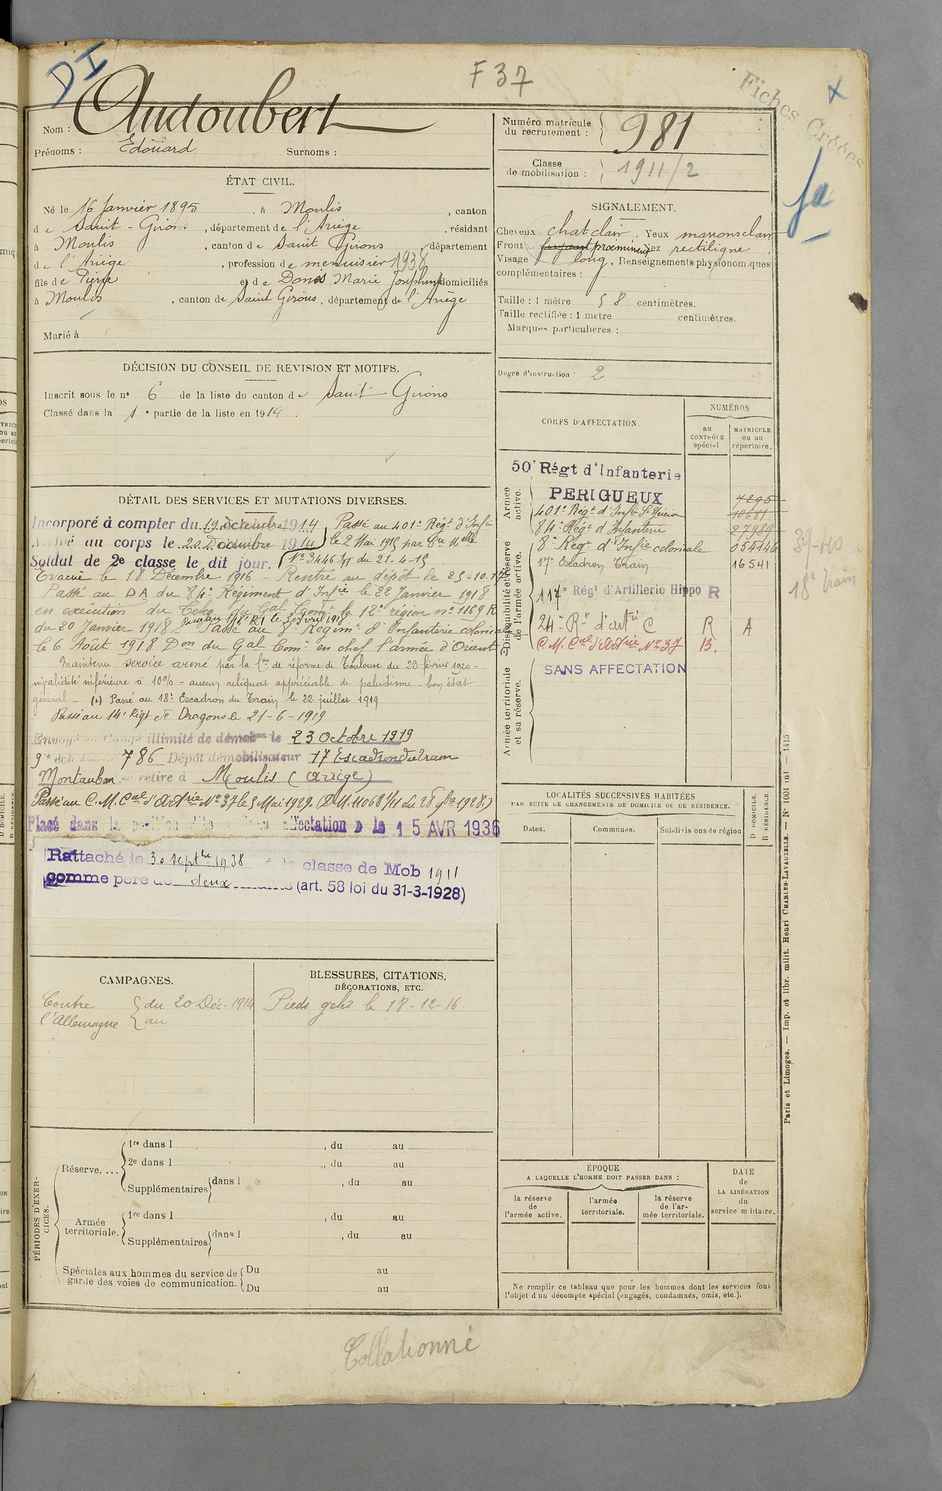 DI
F 37
Fiches Créées
x
fa
Nom : Audoubert
Prénoms : Edouard Surnoms :
Numéro matricule du recrutement : 981
Classe de mobilisation : 1911/2
ÉTAT CIVIL.
Né le 16 Janvier 1895, à Moulis, canton
de Saint-Girons, département de l'Ariège, résidant
à Moulis, canton de Saint Girons, département
de l'Ariège, profession de menuisier 1938
fils de Pierre et de Marie Josephine domiciliés
à Moulis, canton de Saint Girons, département de l'Ariège
Marié à
SIGNALEMENT.
Cheveux chat clair. Yeux marrons clair
Front proéminent Nez rectiligne
Visage long. Renseignements physionomiques
complémentaires :
Taille : 1 mètre 58 centimètres.
Taille rectifiée : 1 mètre centimètres.
Marques particulières :
Degré d'instruction : 2
DÉCISION DU CONSEIL DE REVISION ET MOTIFS.
Inscrit sous le n° 6 de la liste du canton de Saint Girons
Classé dans la 1e partie de la liste en 1914.
DÉTAIL DES SERVICES ET MUTATIONS DIVERSES.
Incorporé à compter du 1914
Arrivé au corps le 20 1914
Soldat de 2e classe le dit jour.
Passé au 401e Régt d'Infie
le 2 Mai 1915 par
du 21-4-15
Evacué le 18 Décembre 1916 - Rentré au dépôt le 25-10-17
Passé au DA du 84e Régiment d'Infie le 22 Janvier 1918
en exécution du Teleg. du Gal Comt la 12e région no 1169 R
du 20 Janvier 1918 - Passé au 8e Régimt d'Infanterie coloniale
le 6 Août 1918 Don du Gal Comt en chef l'armée d'Orient
Maintenu service armé par la Con de réforme de Toulouse du 23 février 1920 -
invalidité inférieure à 10% - aucun reliquat appréciable de paludisme - bon état
général - (x) Passé au 18e Escadron du Train le 22 juillet 1919
Passé au 14e Régt de Dragons le 21-6-1919
Envoyé en Congé illimité de démobon le 23 Octobre 1919
9e éch. 786 Dépôt démobilisateur 17 Escadron du train
Montauban se retire à Moulis (Ariège)
Passé au C.M. Cal d'Artrie No 37 le 5 Mai 1929
Placé dans la position affectation D le 15 AVR 1936
Rattaché le 30 septbre 1938 classe de Mob 1911
comme père de deux (art. 58 loi du 31-3-1928)
CORPS D'AFFECTATION.
NUMÉROS
au CONTRÔLE spécial
MATRICULE ou au répertoire.
Armée active.
Disponibilité et réserve de l'armée active.
Armée territoriale et sa réserve.
50e Régt d'Infanterie
PERIGUEUX 7295
401e Régt d'Infie 10681
84e Régt d'Infanterie 27989
8e Régt d'Infie coloniale
17e Escadron Train 16541
117e Régt d'Artillerie Hippo R
24e Rt d'artie C R A
C.M. Cal d'Artrie No 37 B.
SANS AFFECTATION
18e train
LOCALITÉS SUCCESSIVES HABITÉES
PAR SUITE DE CHANGEMENTS DE DOMICILE OU DE RÉSIDENCE.
Dates. Communes. Subdivisions de région
D DOMICILE. R RÉSIDENCE.
CAMPAGNES.
Contre l'Allemagne { du 20 Déc. 1914
au
BLESSURES, CITATIONS,
DÉCORATIONS, ETC.
Pieds gelés le 18-12-16
PÉRIODES D'EXERCICES.
Réserve....
1re dans l , du au
2e dans l , du au
Supplémentaires dans l , du au
Armée territoriale.
1re dans l , du au
Supplémentaires dans l , du au
Spéciales aux hommes du service de garde des voies de communication.
Du au
Du au
ÉPOQUE
A LAQUELLE L'HOMME DOIT PASSER DANS :
la réserve de l'armée active.
l'armée territoriale.
la réserve de l'armée territoriale.
DATE de LA LIBÉRATION du service militaire.
Ne remplir ce tableau que pour les hommes dont les services font
l'objet d'un décompte spécial (engagés, condamnés, omis, etc.).
Paris et Limoges. — Imp. et libr. milit. Henri CHARLES-LAVAUZELLE. — N° 1001 1415
Collationné